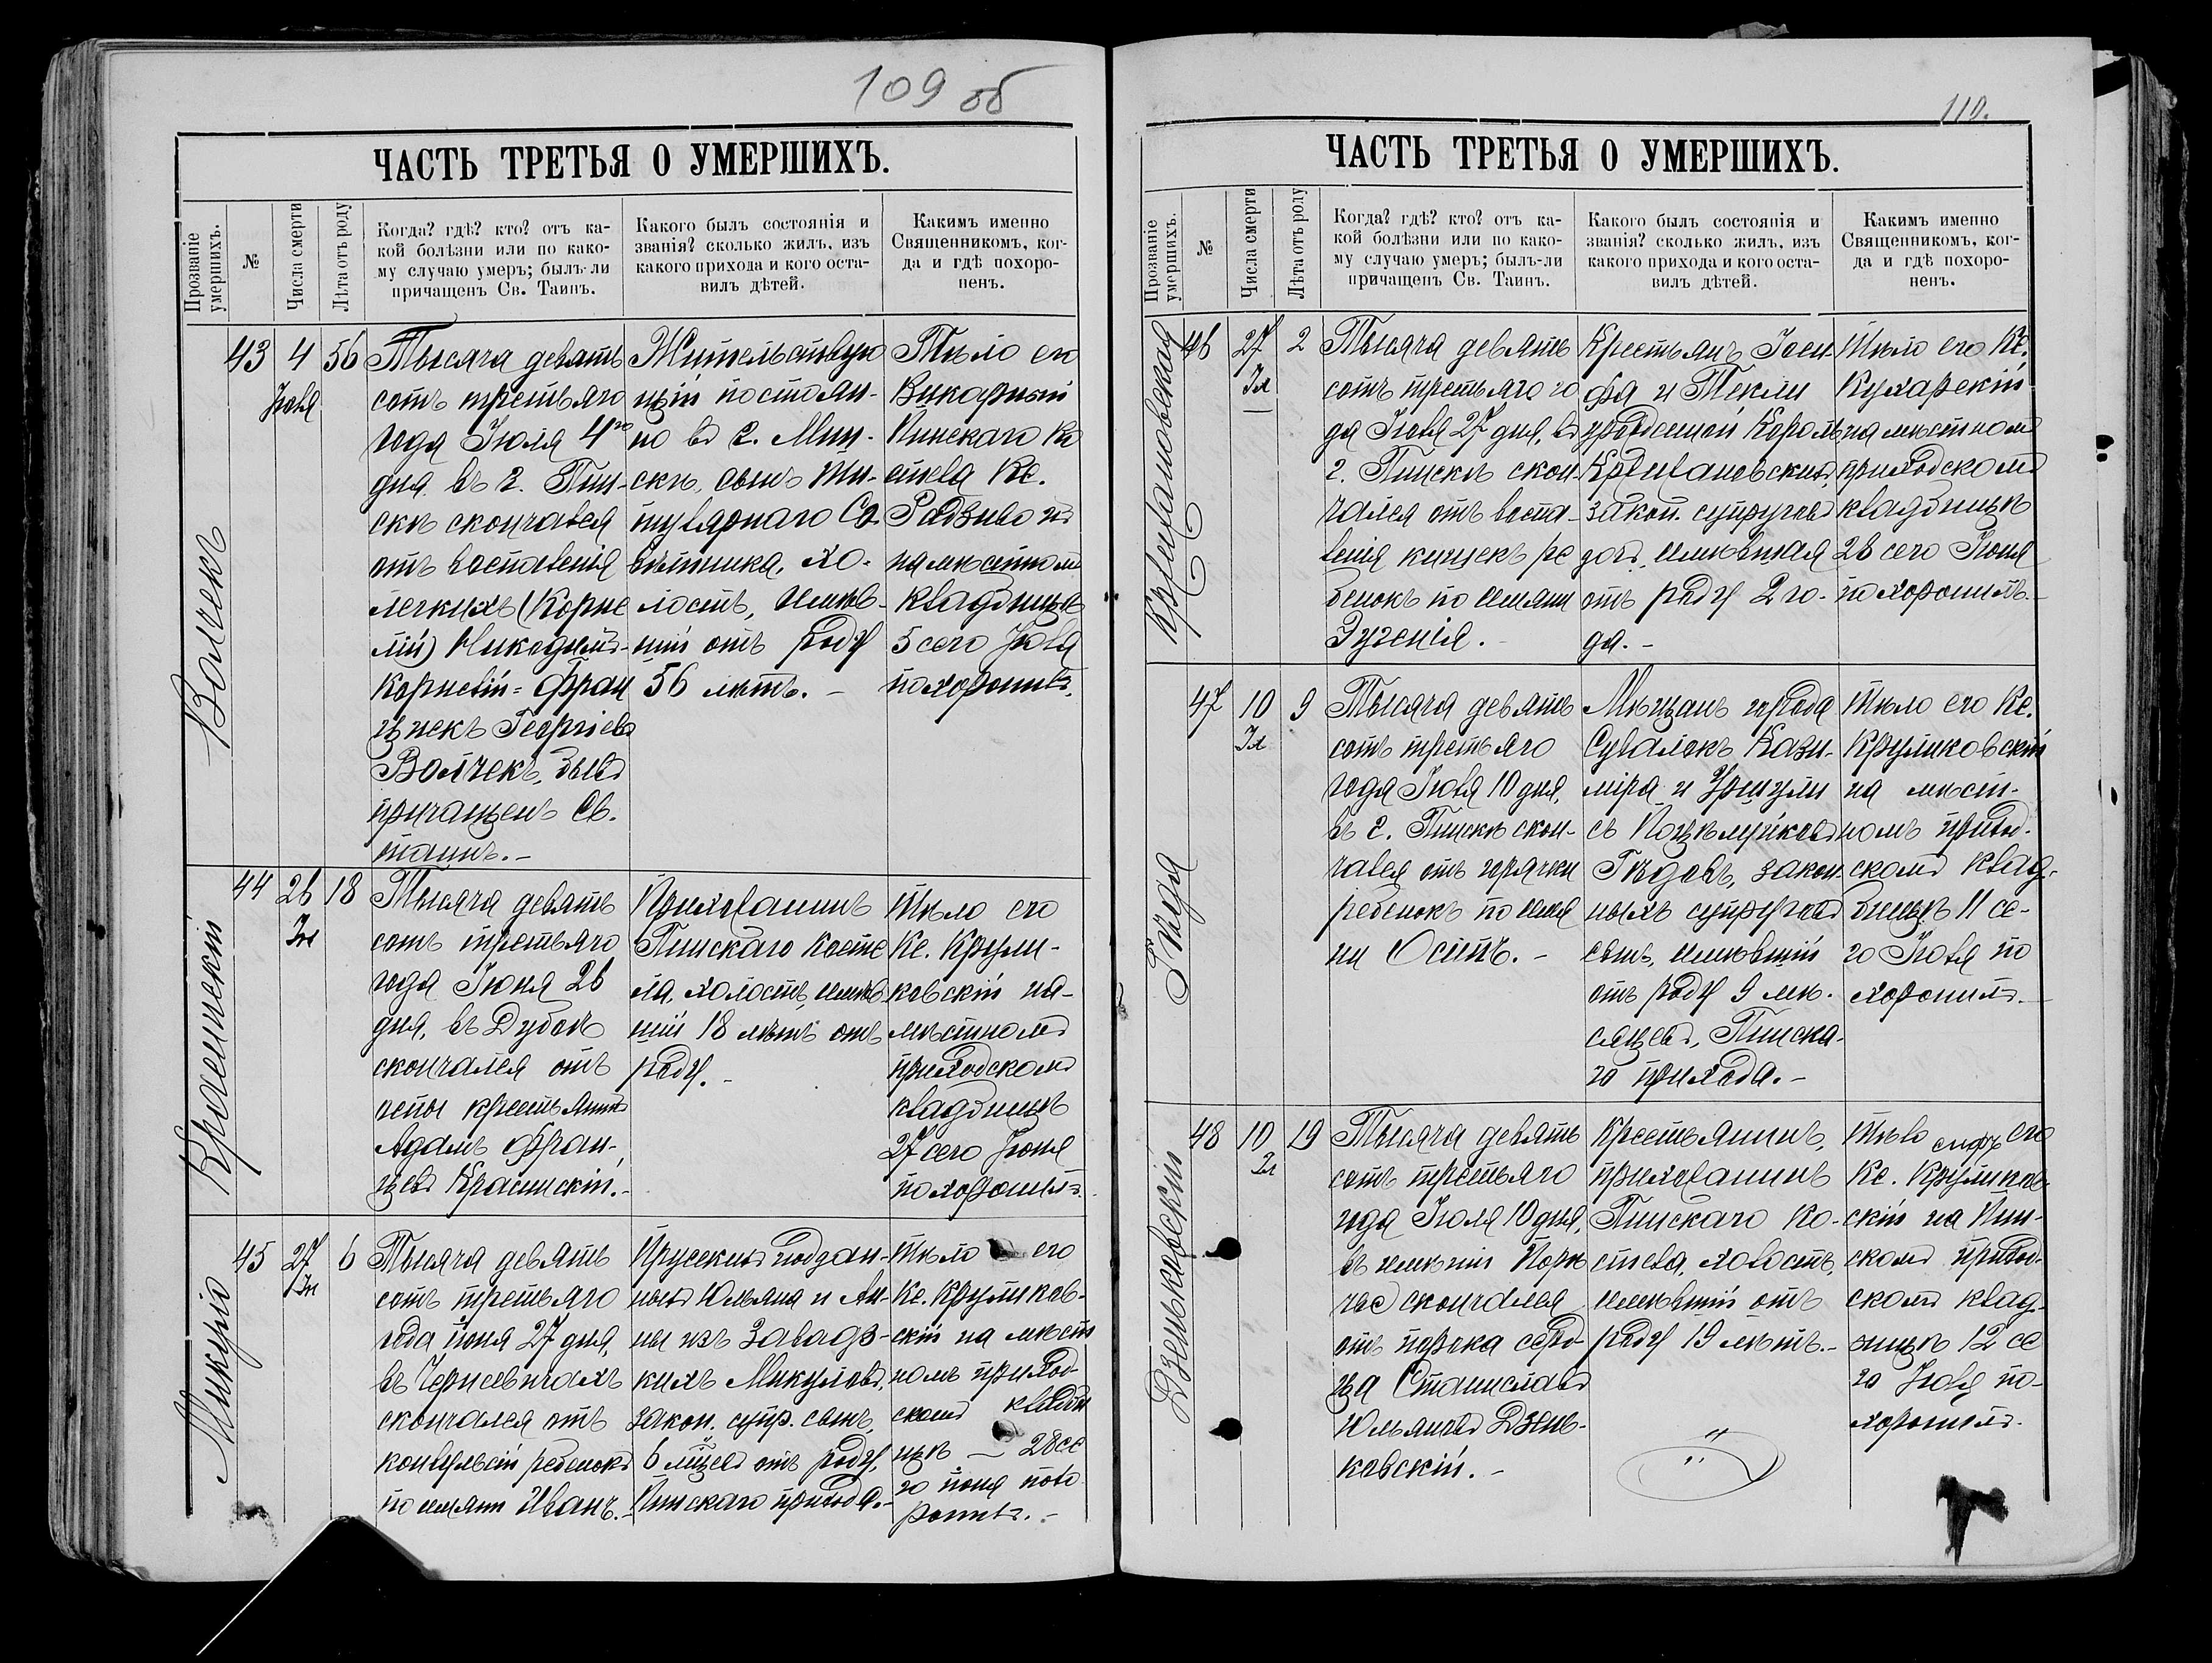 109 об
ЧАСТЬ ТРЕТЬЯ О УМЕРШИХЪ.
Прозваніе умершихъ.
№
Числа смерти
Лѣта отъ роду
Когда? гдѣ? кто? отъ ка-
кой болѣзни или по како-
му случаю умеръ; былъ-ли
причащенъ Св. Таинъ.
Какого былъ состоянія и
званія? сколько жилъ, изъ
какого прихода и кого оста-
вилъ дѣтей.
Какимъ именно
Священникомъ, ког-
да и гдѣ похоро-
ненъ.
Волчекъ
43
4
Іюля
56
Тысяча девять
сотъ третьяго
года Іюля 4го
дня въ г. Пин-
скѣ скончался
отъ воспаленія
легкихъ (Корне
лій) Никодимъ-
Корнелій-Фран
цискъ Георгіевъ
Волчекъ, былъ
причащенъ Св.
таинъ.-
Жительствую
щій постоян-
но въ г. Мин-
скѣ, сынъ Ти-
тулярнаго Со-
вѣтника, хо-
лостъ, имѣв-
шій отъ роду
56 лѣтъ. -
Тѣло его
Викарный
Пинскаго Ко
стела Кс.
Радзиво нъ
на мѣстномъ
кладбищѣ
5 сего Іюля
похоронилъ.
Красинскій
44
26
Ін
18
Тысяча девять
сотъ третьяго
года Іюня 26
дня, въ Дубоѣ
скончался отъ
крестьянинъ
Адамъ Фран-
цевъ Красинскій.-
Прихожанинъ
Пинскаго Косте
ла, холостъ, имѣв
шій 18 лѣтъ отъ
роду.-
Тѣло его
Кс. Крули-
ковскій на
мѣстномъ
приходскомъ
кладбищѣ
27 сего Іюня
похоронилъ.
Микуло
45
27
Ін
6
Тысяча девять
сотъ третьяго
года Іюня 27 дня,
въ Черневичахъ
скончался отъ
конвульсій ребенокъ
по имяни Иванъ.-
Прусскихъ поддан-
ныхъ Юльяна и Ан-
ны изъ Завадз-
кихъ Микуловъ,
закон. супр. сынъ,
6 мцевъ отъ роду,
Пинскаго прихода.-
Тѣло его
Кс. Круликов-
скій на мѣст
номъ приход-
скомъ кладби
щѣ - 28 се
го Іюня похо
ронилъ.-
110.
ЧАСТЬ ТРЕТЬЯ О УМЕРШИХЪ.
Прозваніе умершихъ.
№
Числа смерти
Лѣта отъ роду
Когда? гдѣ? кто? отъ ка-
кой болѣзни или по како-
му случаю умеръ; былъ-ли
причащенъ Св. Таинъ.
Какого былъ состоянія и
званія? сколько жилъ, изъ
какого прихода и кого оста-
вилъ дѣтей.
Какимъ именно
Священникомъ, ког-
да и гдѣ похоро-
ненъ.
Кржижановская
46
27
Ін
2
Тысяча девять
сотъ третьяго го
да Іюня 27 дня, въ
г. Пинскѣ скон-
чался отъ воспа-
ленія кишекъ ре
бенокъ по имяни
Эугенія.-
Крестьянъ Іоси-
фа и Текли
урожденной Король
Кржижановскихъ,
закон. супруговъ
дочь, имѣвшая
отъ роду 2 го-
да.-
Тѣло его Кс.
Кухарскій
на мѣстномъ
приходскомъ
кладбищѣ
28 сего Іюня
похоронилъ.-
Гнда
47
10
Іл
9
Тысяча девять
сотъ третьяго
года Іюля 10 дня,
въ г. Пинскѣ скон-
чался отъ горячки
ребенокъ по имя
ни Осипъ.-
Мѣщанъ города
Сувалокъ Кази-
міра и Уршули
законныхъ супруговъ
сынъ, имѣвшій
отъ роду 9 мѣ-
сяцевъ, Пинска-
го прихода.-
Тѣло его Кс.
Круликовскій
на мѣст-
номъ приход-
скомъ клад-
бищѣ 11 се-
го Іюля по
хоронилъ.-
Дзеньковскій
48
10
Іл
19
Тысяча девять
сотъ третьяго
года Іюля 10 дня,
въ имѣніи Порѣ
чье скончался
отъ порока серд-
ца Станиславъ
Юльяновъ Дзень-
ковскій.-
Крестьянинъ,
прихожанинъ
Пинскаго Ко-
стела, холостъ,
имѣвшій отъ
роду 19 лѣтъ.-
Тѣло его
Кс. Круликов-
скій на Пин-
скомъ приход-
скомъ клад-
бищѣ 12 се
го Іюля по-
хоронилъ.